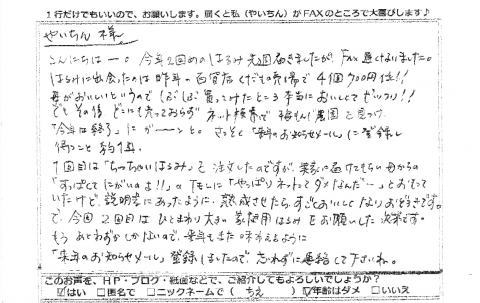 1行だけでもいいので、お願いします。届くと私(やいちん)がFAXのところで大喜びします♪
やいちん 様
こんにちはー。今年2回めのはるみ先週届きましたが、FAX遅くなりました。
はるみに出会ったのは昨年の百貨店くだもの売場で4個900円位!!
母がおいしいというのでしぶしぶ買ってみたところ本当においしくてビックリ!!
でもその後どこにも売っておらずネット検索で 農園を見つけ
「今年は終了」にガーーンと。さっそく「来年のお知らせメール」に登録し
待つこと約1年。
1回目は「ちっちゃいはるみ」を注文したのですが、実家に届けてもらい母からの
「すっぱくてにがいのよ!!」の 「やっぱりネットってダメなんだー」とおもって
いたけど、説明書にあったように、熟成させたら、すごくおいしくなりおどろきです。
で、今回2回目はひとまわり大きい家庭用はるみをお願いした次第です。
もうあとわずかしかないので、来年もまた味わえるように
「来年のお知らせメール」登録しましたので忘れずに連絡して下さいね。
このお声を、HP・ブログ・紙面などで、ご紹介してもよろしいでしょうか?
☑はい □匿名で □ニックネームで( ちえ ) ☑年齢はダメ □いいえ